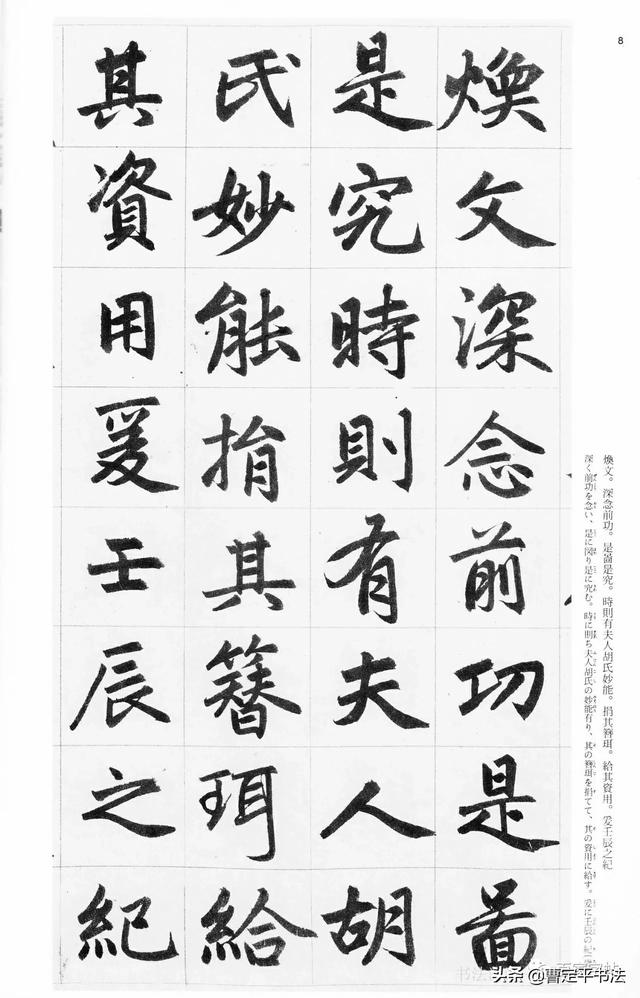 8
煥文。深念前功。是啚是究。時則有夫人胡氏妙能。捐其簪珥。給其資用。爰壬辰之紀
深く前功を念い、是に図り是に究む。時に則ち夫人胡氏の妙能有り、其の簪珥を捐てて、其の資用に給す。爰に壬辰の紀
煥文深念前功是啚
是究時則有夫人胡
氏妙能捐其簪珥給
其資用爰壬辰之紀
头条 @曹定平书法